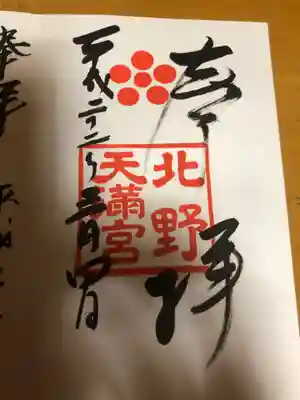 奉拝
北野
天満宮
平成二十二年三月四日
奉拝